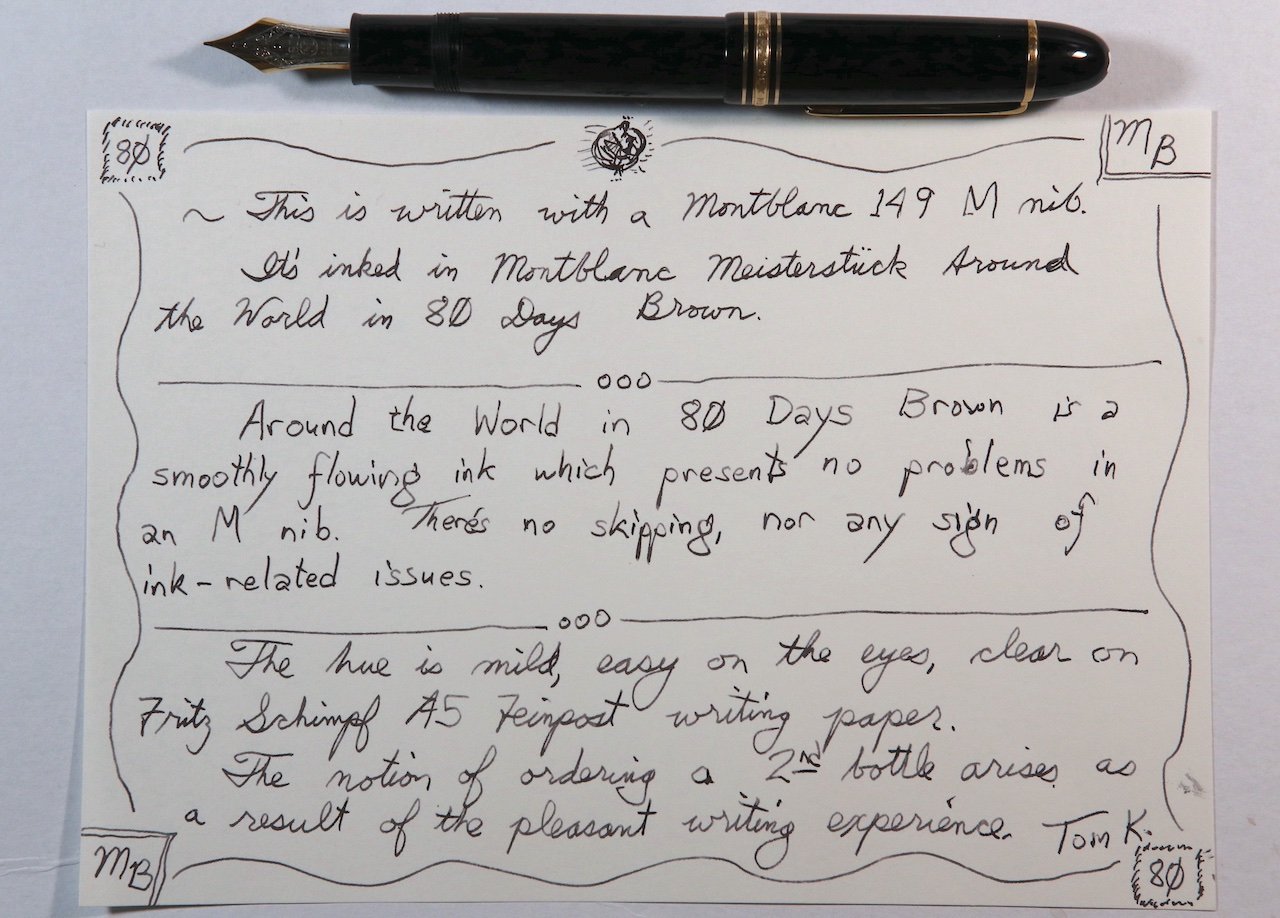 80
MB
~ This is written with a Montblanc 149 M nib.
It's inked in Montblanc Meisterstück Around
the World in 80 Days Brown.
Around the World in 80 Days Brown is a
smoothly flowing ink which presents no problems in
an M nib. There's no skipping, nor any sign of
ink-related issues.
The hue is mild, easy on the eyes, clear on
Fritz Schimpf A5 Feinpost writing paper.
The notion of ordering a 2nd bottle arises as
a result of the pleasant writing experience. Tom K.
MB
80